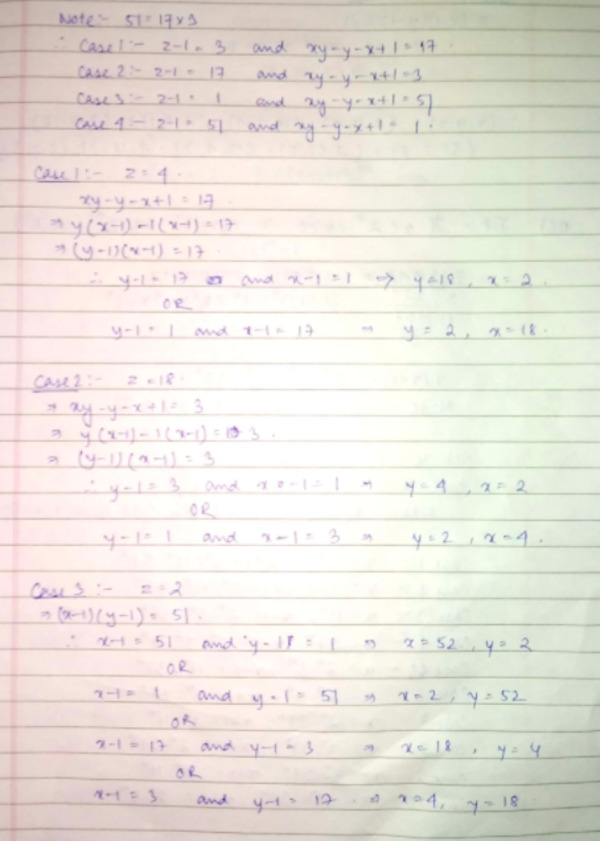 Note:- 51 = 17×3
∴ Case 1:- z-1 = 3 and xy-y-x+1 = 17.
Case 2:- z-1 = 17 and xy-y-x+1 = 3
Case 3:- z-1 = 1 and xy-y-x+1 = 51
Case 4:- z-1 = 51 and xy-y-x+1 = 1.
Case 1:- z = 4.
xy-y-x+1 = 17.
⇒ y(x-1)-1(x-1) = 17
⇒ (y-1)(x-1) = 17.
∴ y-1 = 17 and x-1 = 1 ⇒ y=18, x=2.
OR
y-1 = 1 and x-1 = 17 ⇒ y = 2, x=18.
Case 2:- z = 18.
⇒ xy-y-x+1 = 3
⇒ y(x-1)-1(x-1) = 3.
⇒ (y-1)(x-1) = 3
∴ y-1 = 3 and x=-1 = 1 ⇒ y=4, x=2
OR
y-1 = 1 and x-1 = 3 ⇒ y=2, x=4.
Case 3:- z=2
⇒ (x-1)(y-1) = 51.
∴ x-1 = 51 and y-1 = 1 ⇒ x=52, y=2
OR
x-1 = 1 and y-1 = 51 ⇒ x=2, y=52
OR
x-1 = 17 and y-1 = 3 ⇒ x=18, y=4
OR
x-1 = 3 and y-1 = 17 ⇒ x=4, y=18